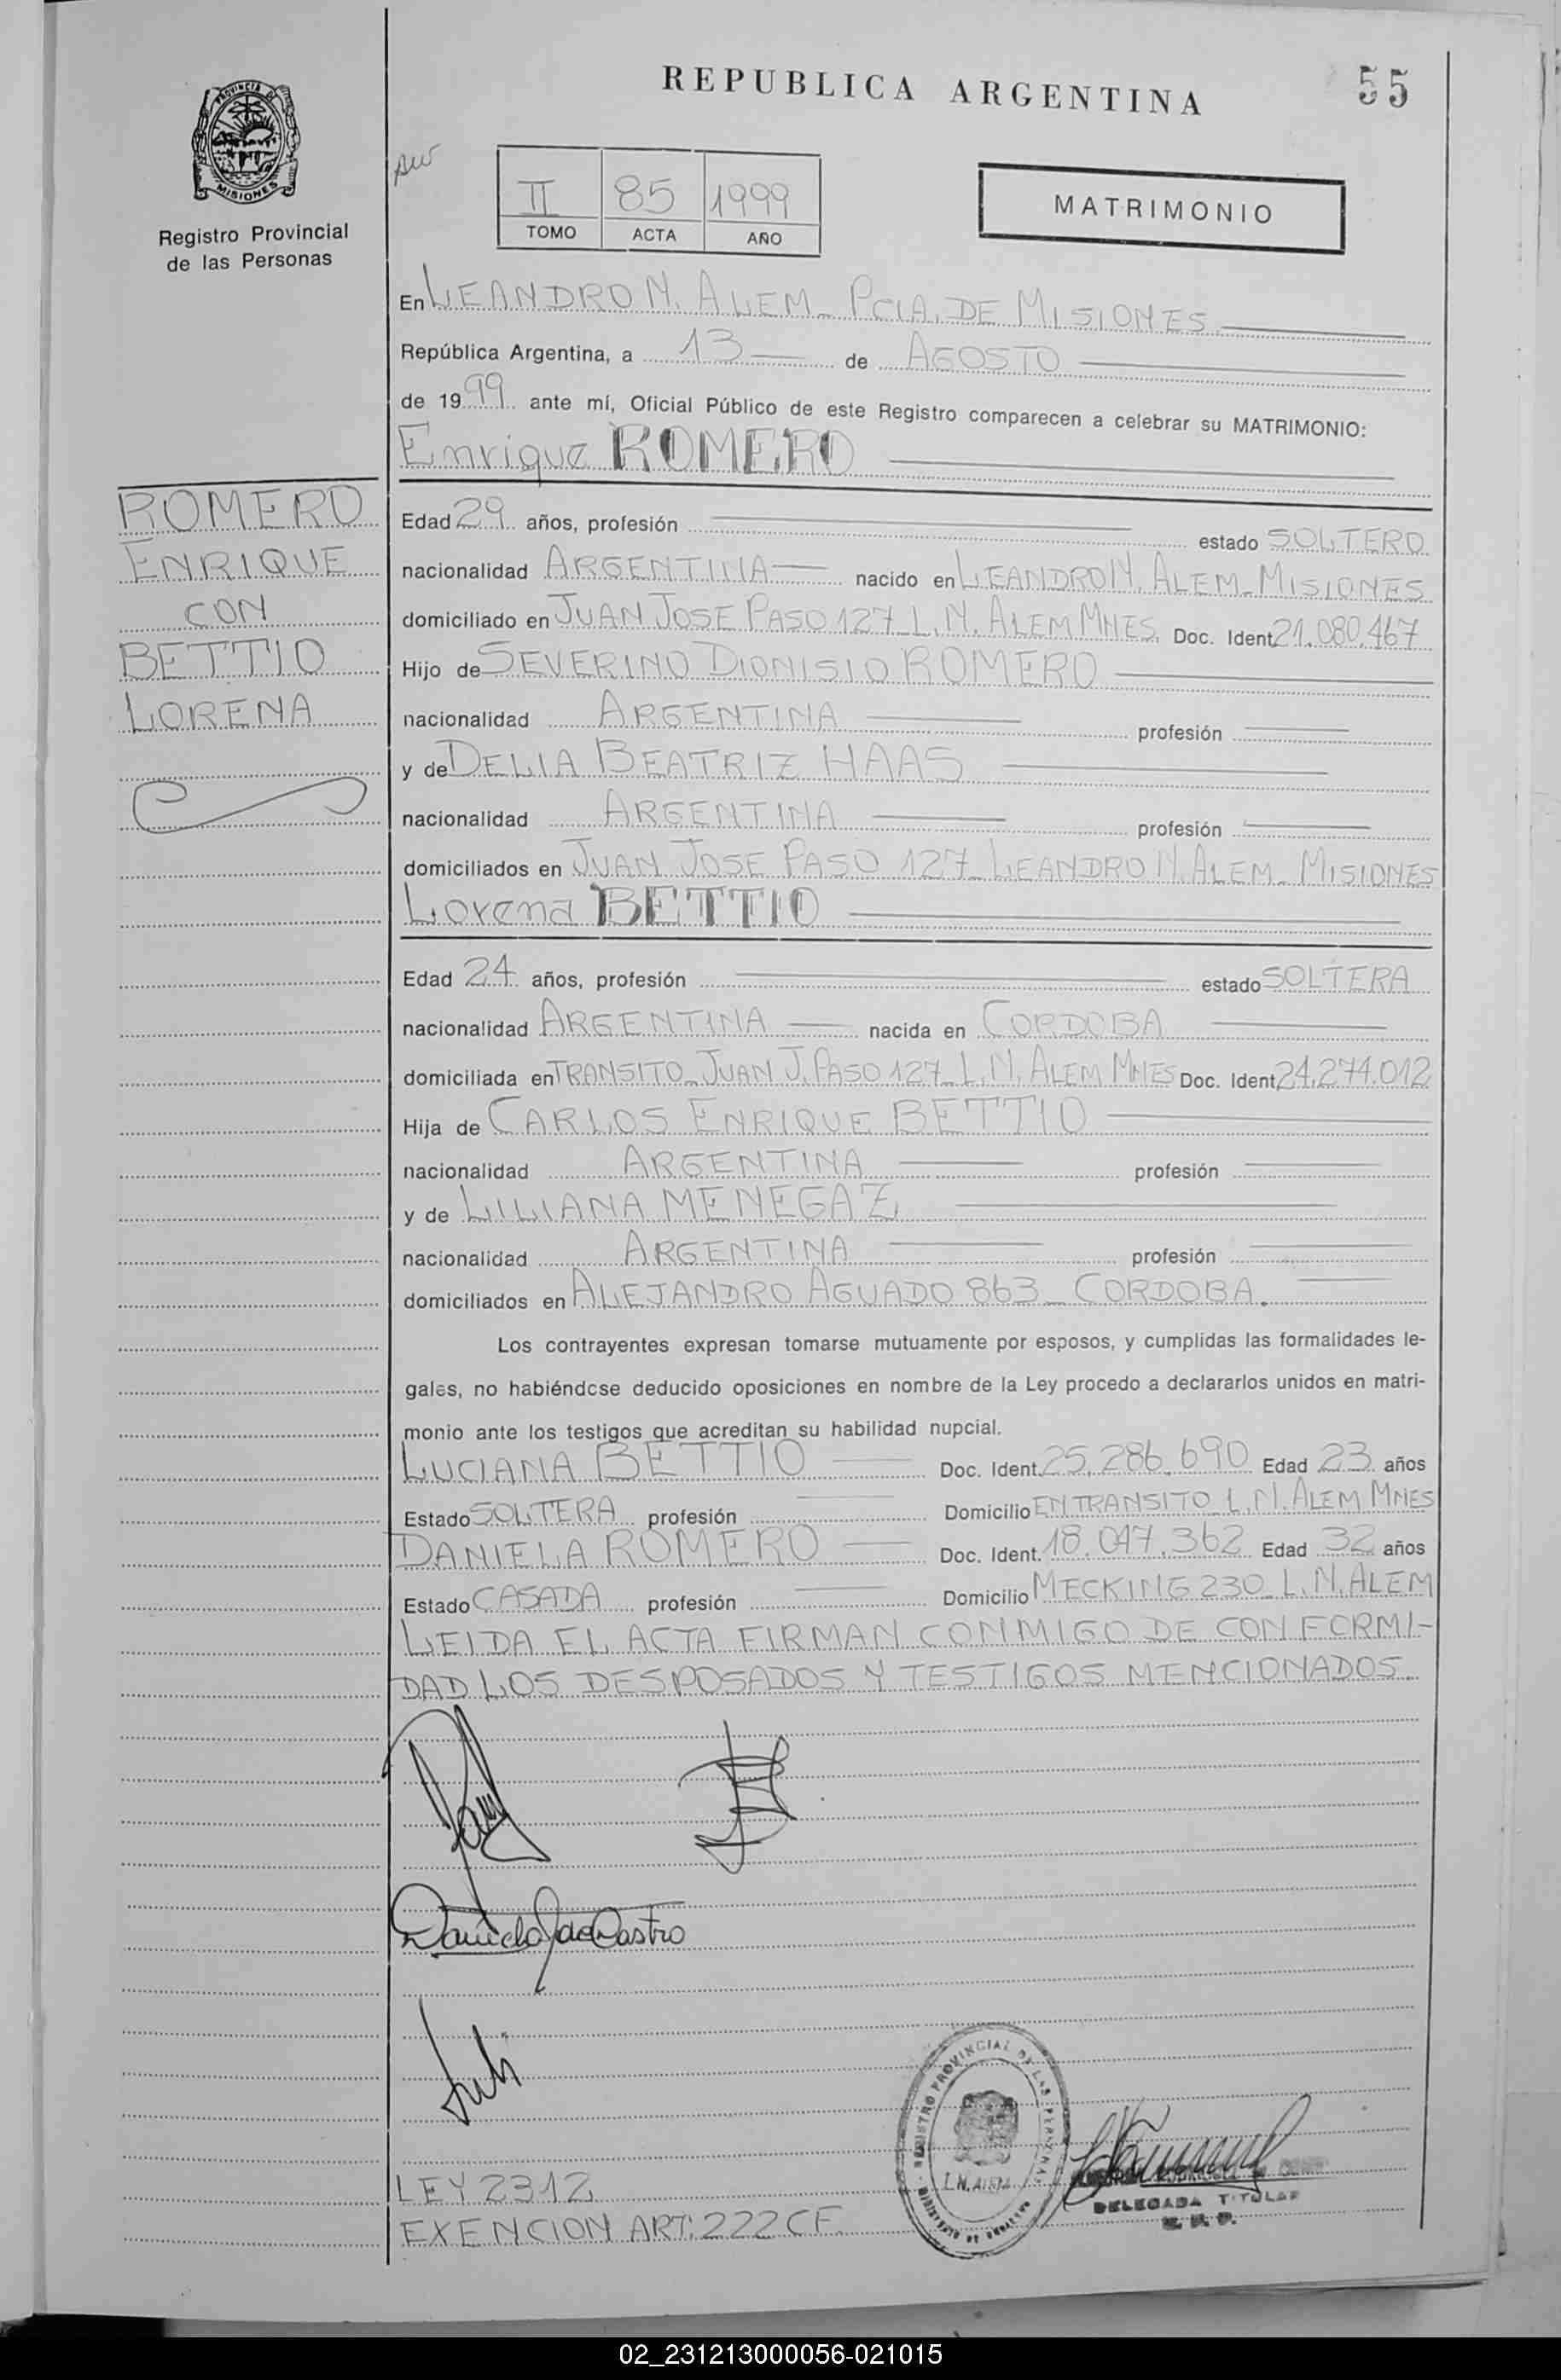 REPUBLICA ARGENTINA
55
PROVINCIA DE
MISIONES
Registro Provincial
de las Personas
II 85 1999
TOMO ACTA AÑO
MATRIMONIO
En LEANDRO N. ALEM - PCIA. DE MISIONES
República Argentina, a 13 de AGOSTO
de 1999 ante mí, Oficial Público de este Registro comparecen a celebrar su MATRIMONIO:
Enrique ROMERO
ROMERO
ENRIQUE
CON
BETTIO
LORENA
Edad 29 años, profesión estado SOLTERO
nacionalidad ARGENTINA nacido en LEANDRO N. ALEM - MISIONES
domiciliado en JUAN JOSE PASO 127 L. N. ALEM MNES. Doc. Ident. 21.080.467
Hijo de SEVERINO DIONISIO ROMERO
nacionalidad ARGENTINA profesión
y de DELIA BEATRIZ HAAS
nacionalidad ARGENTINA profesión
domiciliados en JUAN JOSE PASO 127 - LEANDRO N. ALEM - MISIONES
Lorena BETTIO
Edad 24 años, profesión estado SOLTERA
nacionalidad ARGENTINA nacida en CORDOBA
domiciliada en TRANSITO - JUAN J. PASO 127 - L. N. ALEM MNES Doc. Ident. 24.274.012
Hija de CARLOS ENRIQUE BETTIO
nacionalidad ARGENTINA profesión
y de LILIANA MENEGAZ
nacionalidad ARGENTINA profesión
domiciliados en ALEJANDRO AGUADO 863 - CORDOBA.
Los contrayentes expresan tomarse mutuamente por esposos, y cumplidas las formalidades le-
gales, no habiéndose deducido oposiciones en nombre de la Ley procedo a declararlos unidos en matri-
monio ante los testigos que acreditan su habilidad nupcial.
LUCIANA BETTIO Doc. Ident. 25.286.690 Edad 23 años
Estado SOLTERA profesión Domicilio EN TRANSITO L. N. ALEM MNES
DANIELA ROMERO Doc. Ident. 18.047.362 Edad 32 años
Estado CASADA profesión Domicilio MECKING 230 - L. N. ALEM
LEIDA EL ACTA FIRMAN CONMIGO DE CONFORMI-
DAD LOS DESPOSADOS Y TESTIGOS MENCIONADOS.
Daniela de Castro
REGISTRO PROVINCIAL DE LAS PERSONAS
L.N. ALEM
DELEGADA TITULAR
R. P. P.
LEY 2312
EXENCION ART: 222 CF.
02_231213000056-021015